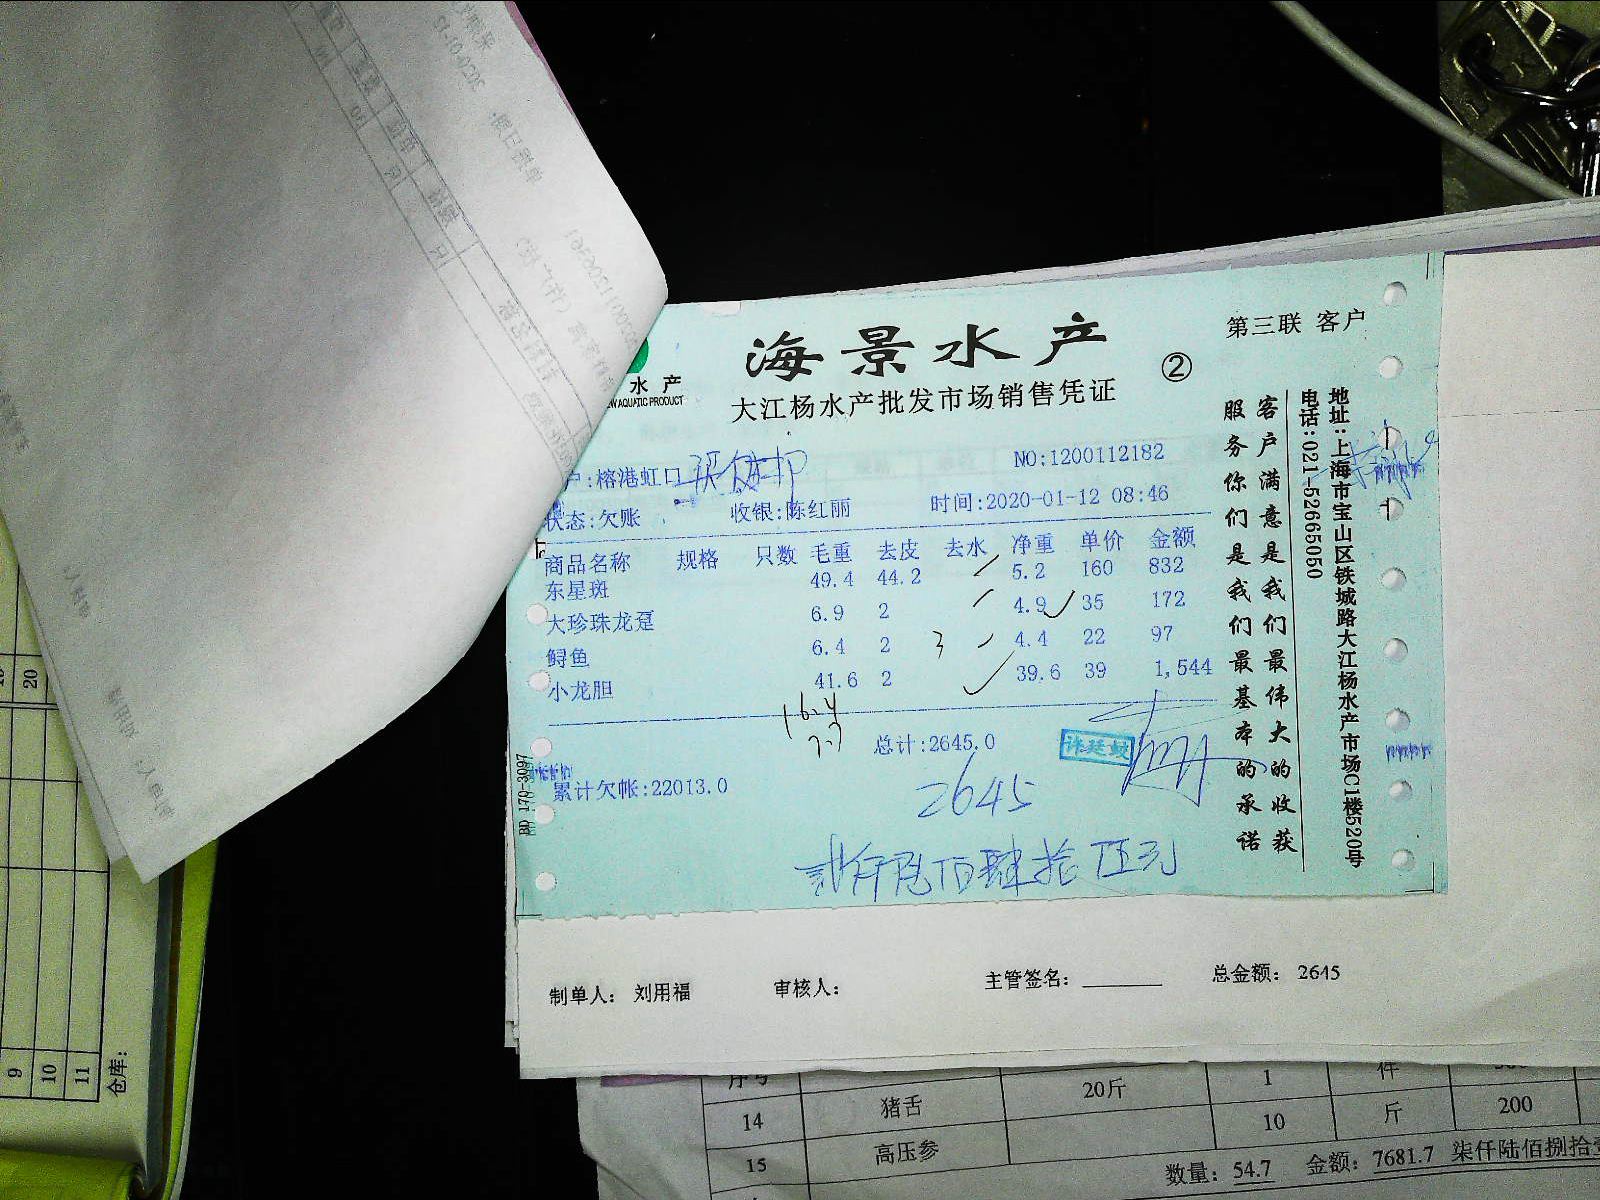 第三联 客户
海景水产
②
水产
AQUATIC PRODUCT
大江杨水产批发市场销售凭证
户:榕港虹口
NO:1200112182
状态:欠账 收银:陈红丽 时间:2020-01-12 08:46
商品名称 规格 只数 毛重 去皮 去水 净重 单价 金额
东星斑 49.4 44.2 5.2 160 832
大珍珠龙趸 6.9 2 4.9 35 172
鲟鱼 6.4 2 3 4.4 22 97
小龙胆 41.6 2 39.6 39 1,544
16.4
7.7
总计:2645.0
许廷蛟
累计欠帐:22013.0
2645
贰仟陆佰肆拾伍元
BD 170-3097
客户满意是我们最伟大的收获
服务你们是我们最基本的承诺
地址:上海市宝山区铁城路大江杨水产市场C1楼520号
电话:021-52665050
制单人: 刘用福 审核人: 主管签名: 总金额: 2645
序号 20斤 1 件
14 猪舌 10 斤 200
15 高压参
数量: 54.7 金额: 7681.7 柒仟陆佰捌拾
20
9
10
11
仓库: